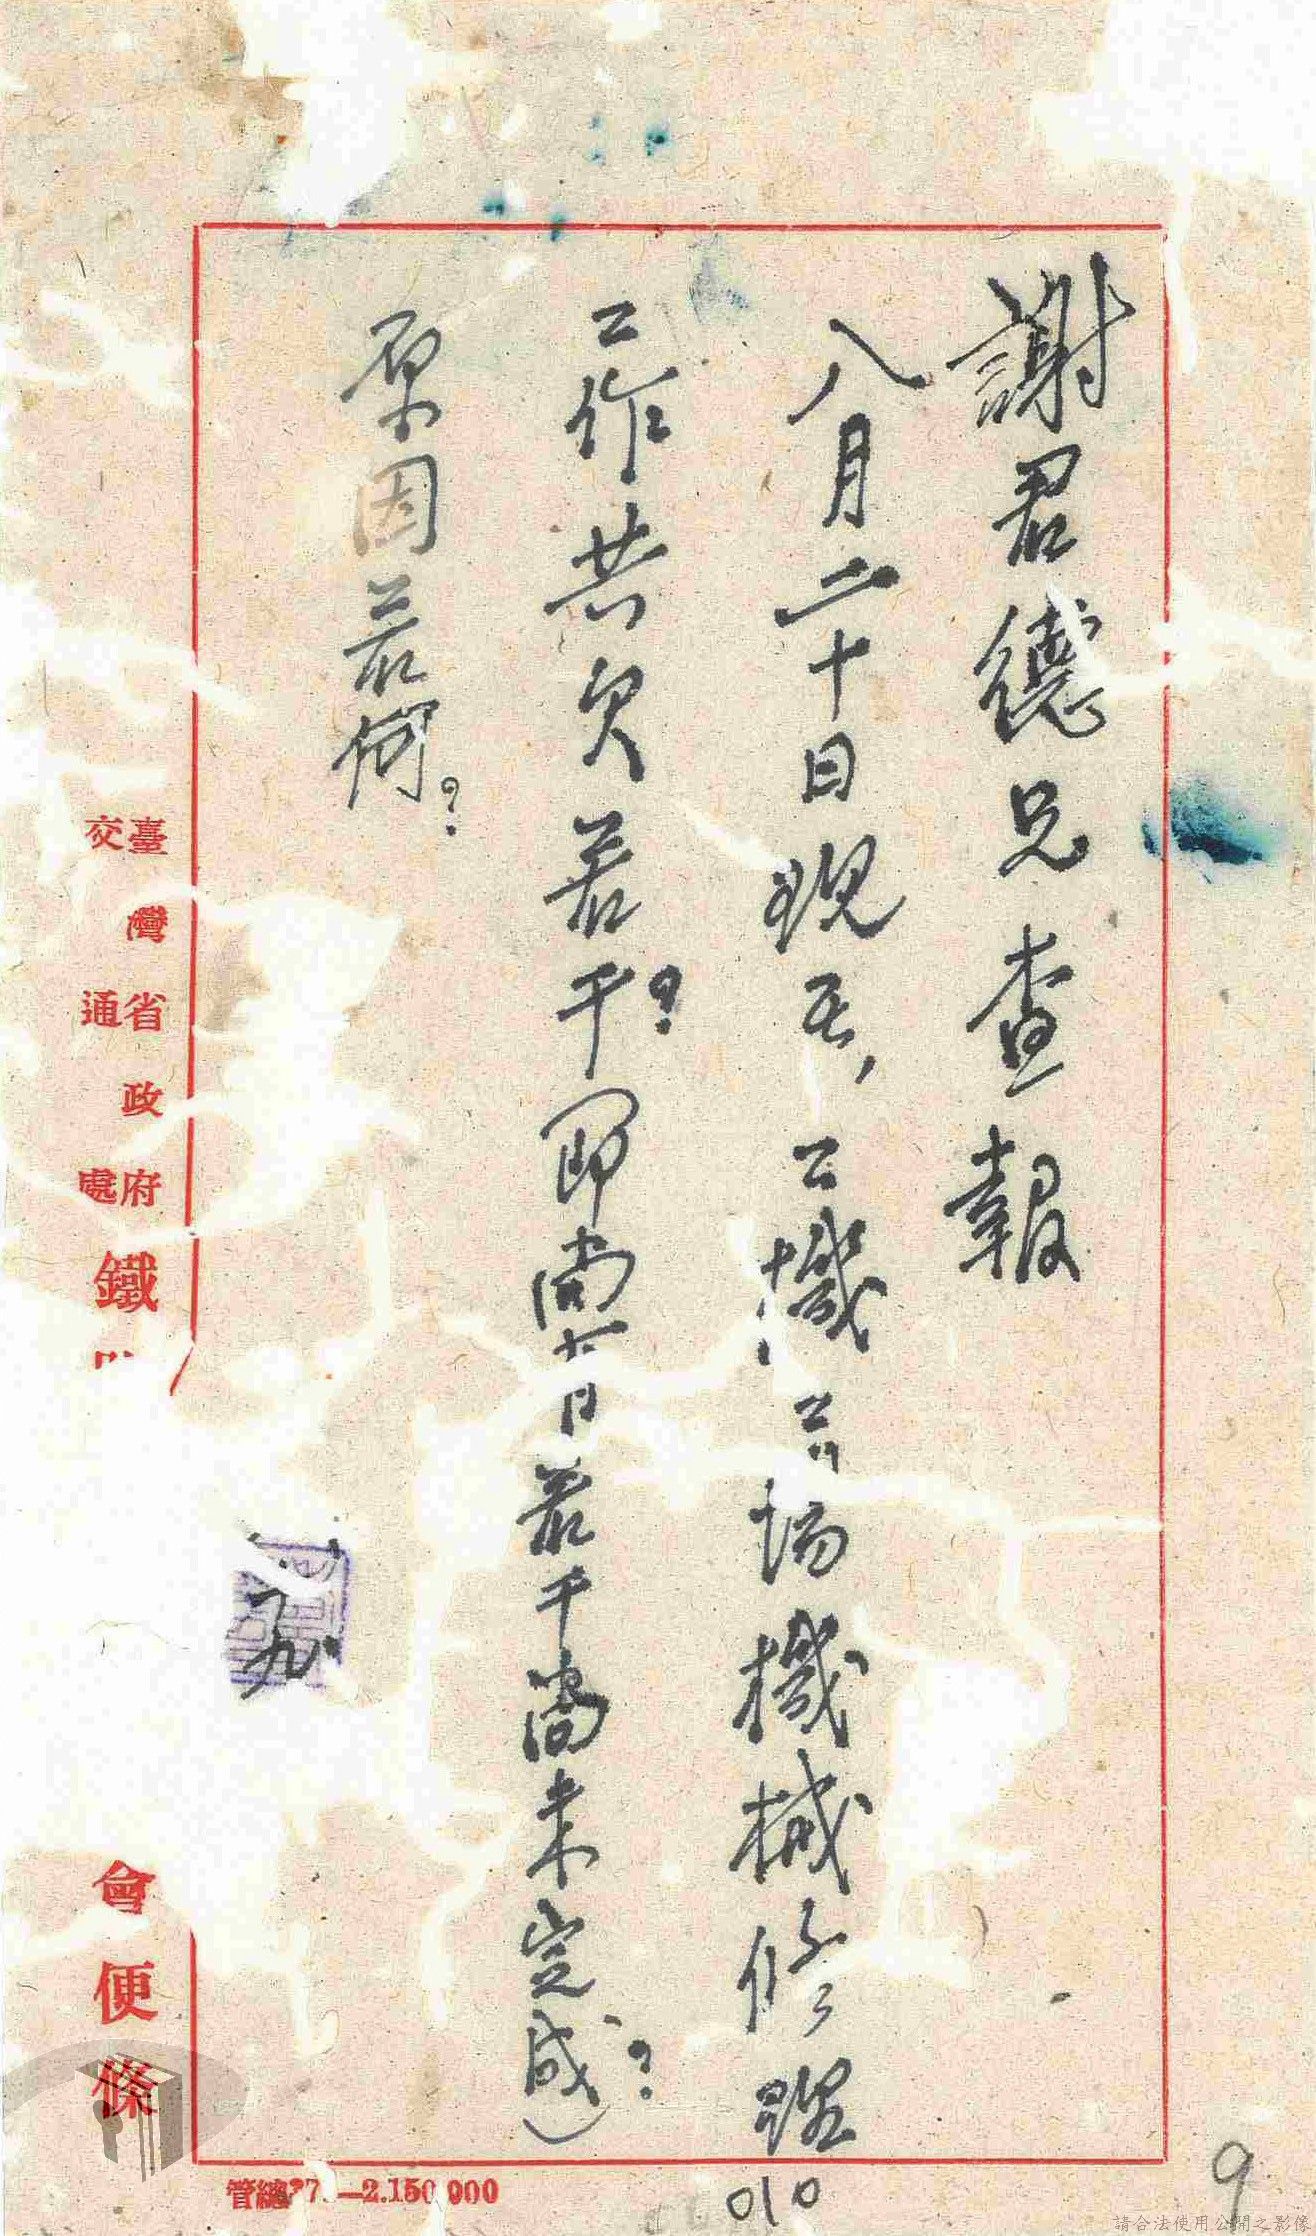 謝君德兄查報
八月二十日現在，工機工場機械修理
工作共欠若干？（即尚有若干尚未完成）？
原因若何？
臺灣省政府
交通處
鐵
會便條
管總37.—2.150 000
010
9
請合法使用公開之影像